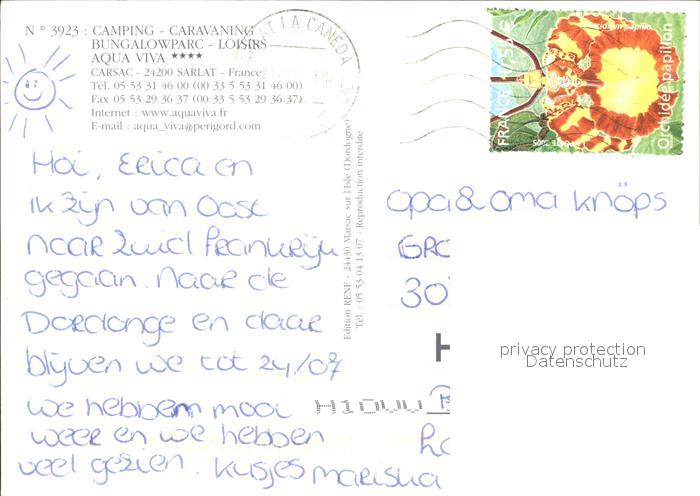 N° 3923 : CAMPING - CARAVANING
BUNGALOWPARC - LOISIRS
AQUA VIVA ★★★★
CARSAC - 24200 SARLAT - France
Tél. 05 53 31 46 00 (00 33 5 53 31 46 00)
Fax 05 53 29 36 37 (00 33 5 53 29 36-37)
Internet : www.aquaviva.fr
E-mail : aqua_viva@perigord.com
SARLAT LA CANEDA
FRANCE
Orchidée papillon
Hoi, Erica en
ik zijn van Oost
naar Zuid Frankrijk
gegaan. Naar de
Dordonge en daar
blijven we tot 24/07
we hebben mooi
weer en we hebben
veel gezien. Kusjes mariska
Edition RENE - 24430 Marsac sur l'Isle (Dordogne)
Tél. : 05 53 04 13 07 - Reproduction interdite
opa & oma knöps
GRO
30
H
privacy protection
Datenschutz